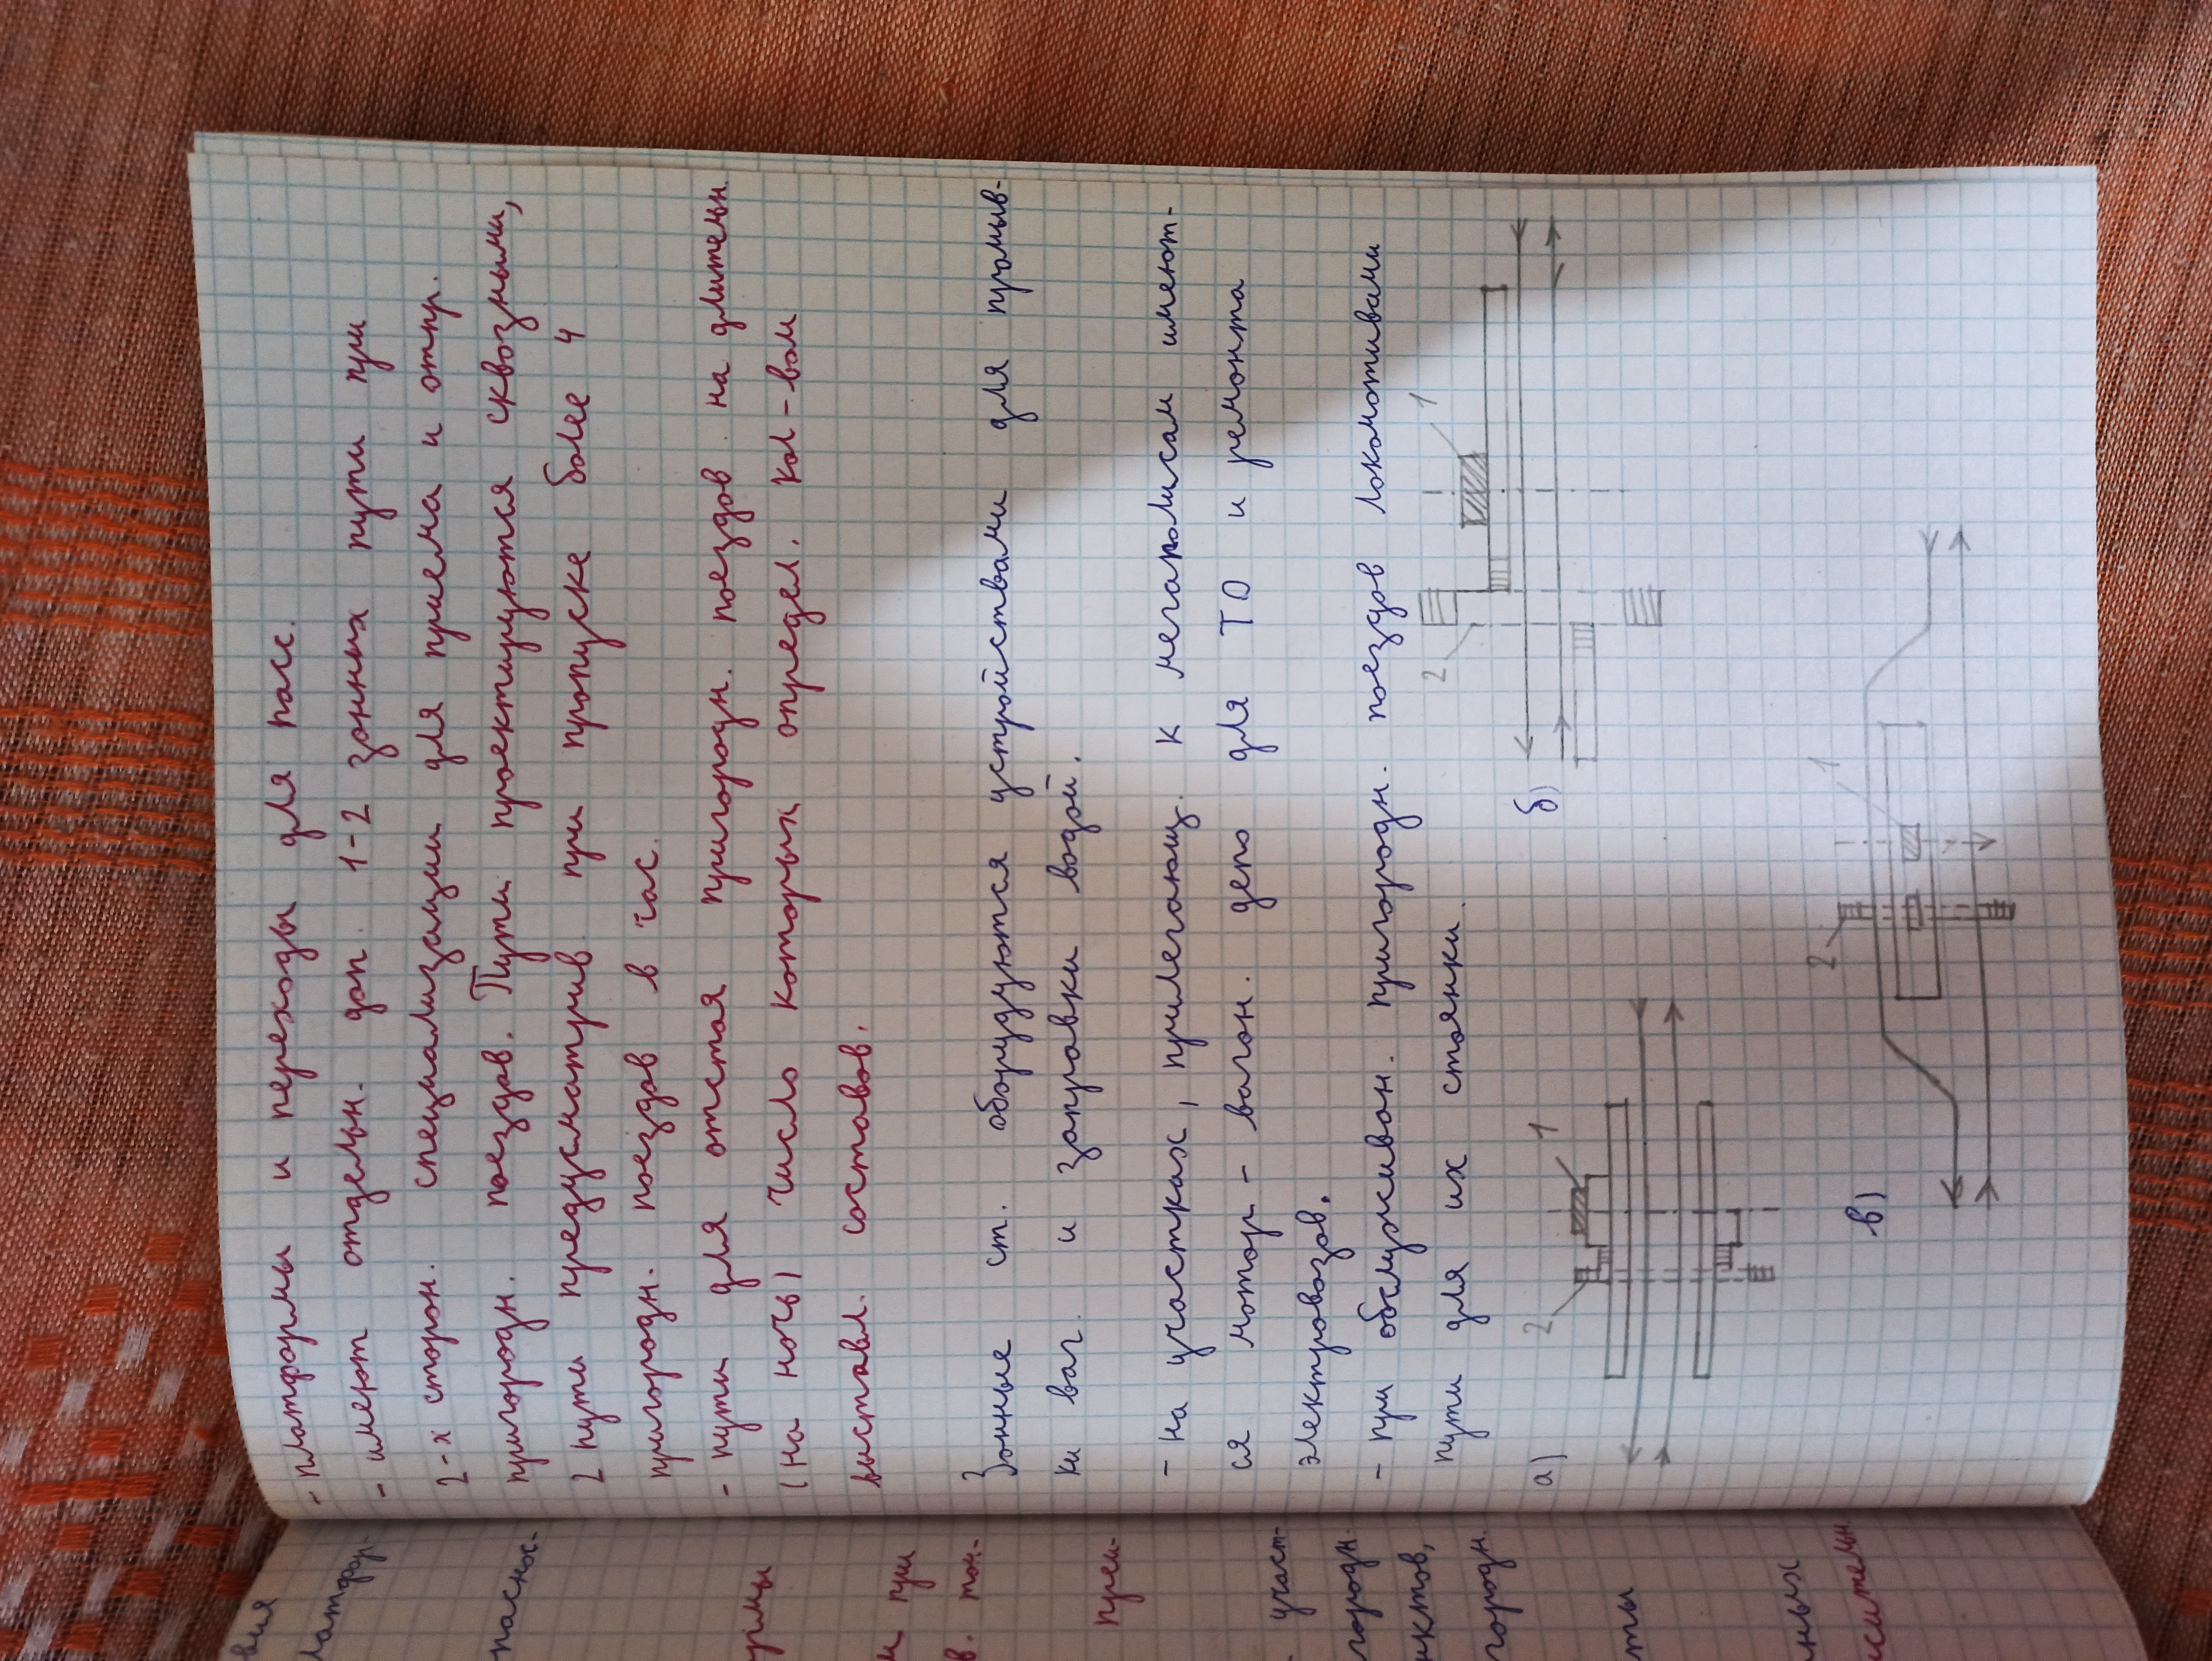 - платформы и переходы для пасс.
- имеют отдельн. доп. 1-2 зонных пути при
2-х сторон. специализации для приема и отпр.
пригородн. поездов. Пути проектируются сквозными,
2 пути предусматрив. при пропуске более 4
пригородн. поездов в час.
- пути для отстоя пригородн. поездов на длительн.
(на ночь) число которых определ. кол-вом
выставл. составов.
Зонные ст. оборудуются устройствами для промыв-
ки ваг. и заправки водой.
- на участках, прилегающ. к мегаполисам имеют-
ся мотор-вагон. депо для ТО и ремонта
электровозов.
- при обслуживан. пригородн. поездов локомотивами
пути для их стоянки.
а)
2
1
б)
2
1
в)
2
1
вия
латфор.
паснос-
рмы
и при
в. тон-
прей-
участ-
городн.
нктов,
городн.
ты
ных
сительн.